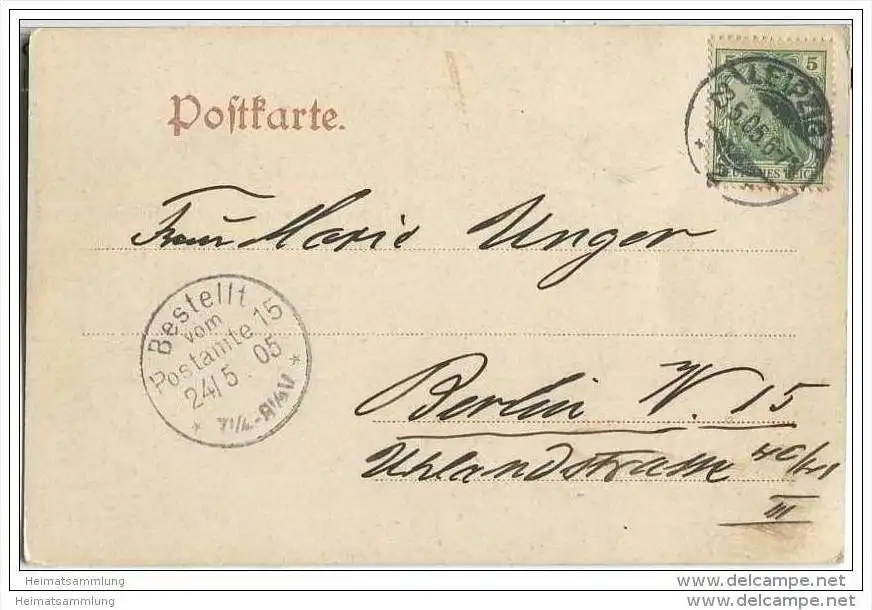 Postkarte.
5
LEIPZIG
23.5.05.6-7
DEUTSCHES REICH
Frau Marie Unger
Bestellt
vom
Postamte 15
24/5 05
7¼-8¼V
Berlin W. 15
Uhlandstrasse 40/41
III
Heimatsammlung
www.delcampe.net
Heimatsammlung
www.delcampe.net